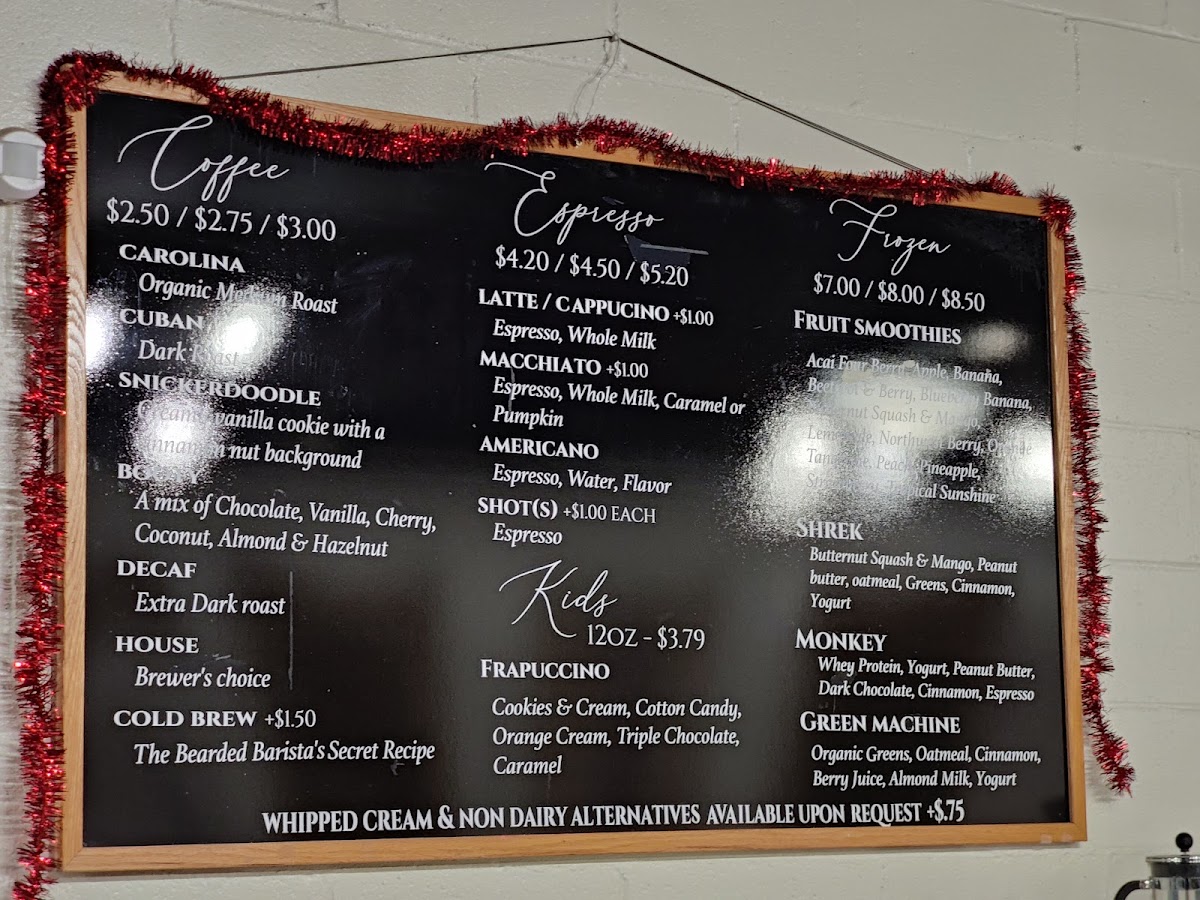 Coffee
$2.50 / $2.75 / $3.00
CAROLINA
Organic Medium Roast
CUBAN
Dark Roast
SNICKERDOODLE
Creamy vanilla cookie with a
cinnamon nut background
A mix of Chocolate, Vanilla, Cherry,
Coconut, Almond & Hazelnut
DECAF
Extra Dark roast
HOUSE
Brewer's choice
COLD BREW +$1.50
The Bearded Barista's Secret Recipe
Espresso
$4.20 / $4.50 / $5.20
LATTE / CAPPUCINO +$1.00
Espresso, Whole Milk
MACCHIATO +$1.00
Espresso, Whole Milk, Caramel or
Pumpkin
AMERICANO
Espresso, Water, Flavor
SHOT(S) +$1.00 EACH
Espresso
Kids
12OZ - $3.79
FRAPUCCINO
Cookies & Cream, Cotton Candy,
Orange Cream, Triple Chocolate,
Caramel
Frozen
$7.00 / $8.00 / $8.50
FRUIT SMOOTHIES
Acai Four Berry, Apple, Banana,
Beetroot & Berry, Blueberry Banana,
Butternut Squash & Mango,
Lemonade, Northwest Berry, Orange
Tangerine, Peach, Pineapple,
Tropical Sunshine
SHREK
Butternut Squash & Mango, Peanut
butter, oatmeal, Greens, Cinnamon,
Yogurt
MONKEY
Whey Protein, Yogurt, Peanut Butter,
Dark Chocolate, Cinnamon, Espresso
GREEN MACHINE
Organic Greens, Oatmeal, Cinnamon,
Berry Juice, Almond Milk, Yogurt
WHIPPED CREAM & NON DAIRY ALTERNATIVES AVAILABLE UPON REQUEST +$.75